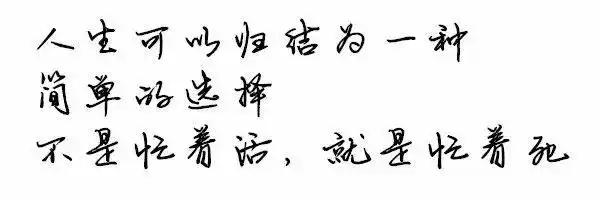 人生可以归结为一种
简单的选择
不是忙着活，就是忙着死